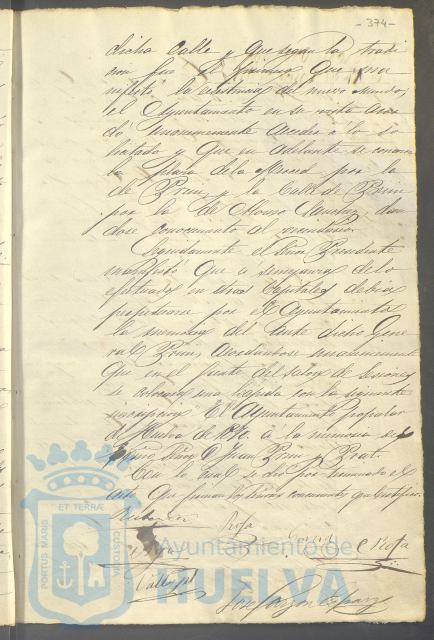 - 374 -
dicha calle y que segun la tradi
cion fue el primero que ma
nifestó la existencia del nuevo Mundo,
el Ayuntamiento en su vista acor
dó unanimemente acceder á lo so
licitado y que en adelante se conozca
la plaza de la Merced por la
de Prim, y la Calle de Prim
por la de Alonso Sanchez, dan
dose conocimiento al vecindario.
Seguidamente el Señor Presidente
manifestó que á semejanza de lo
efectuado en otras Capitales debia
perpetuarse por el Ayuntamiento
la memoria del ante dicho Gene
ral Prim, acordandose unanimemente
que en el frente del salon de sesiones
se colocara una lapida con la siguiente
inscripcion. El Ayuntamiento popular
de Huelva de 1870. á la memoria del
Señor D. Juan Prim y Prat.
Con lo cual se dio por terminado el
acto que firman los Señores concurrentes que certifico.
Rofa
Garcia
C Rofa
Vallejo
Jose
PORTUS MARIS ET TERRÆ CUSTODIA
Ayuntamiento de
HUELVA